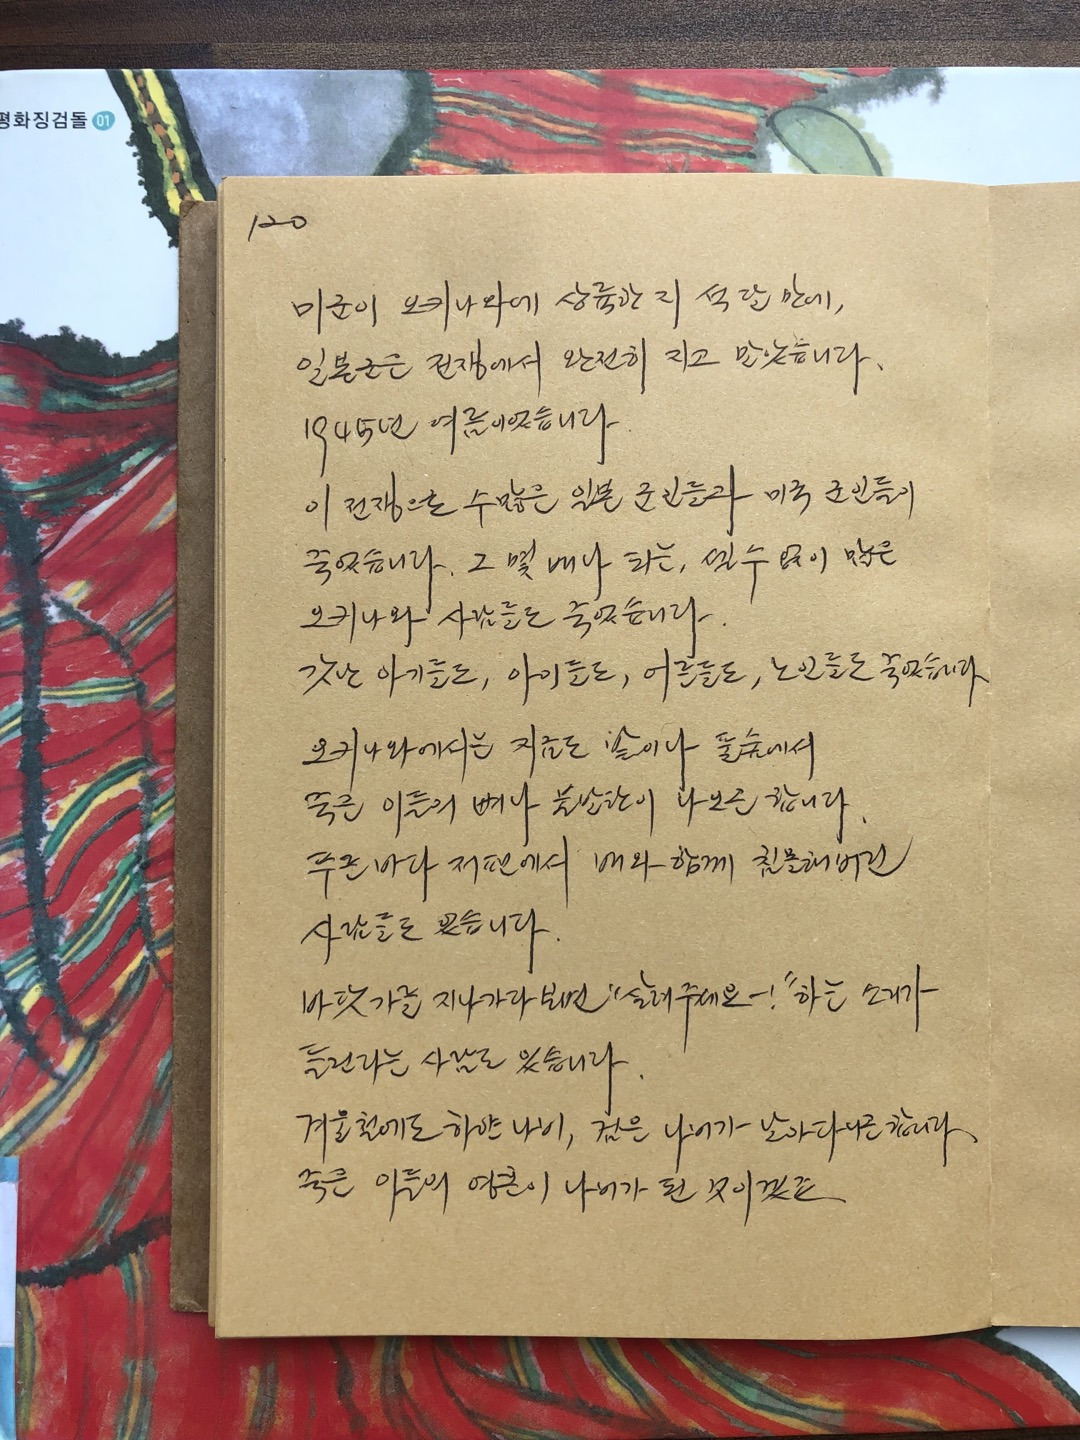 평화징검돌 01
120
미군이 오키나와에 상륙한 지 석 달 만에,
일본군은 전쟁에서 완전히 지고 말았습니다.
1945년 여름이었습니다.
이 전쟁으로 수많은 일본 군인들과 미국 군인들이
죽었습니다. 그 몇 배나 되는, 셀 수 없이 많은
오키나와 사람들도 죽었습니다.
갓난 아기들도, 아이들도, 어른들도, 노인들도 죽었습니다
오키나와에서는 지금도 밭이나 풀숲에서
죽은 이들의 뼈나 불발탄이 나오곤 합니다.
푸른 바다 저편에서 배와 함께 침몰해버린
사람들도 있습니다.
바닷가를 지나가다 보면 "살려주세요-!" 하는 소리가
들린다는 사람도 있습니다.
겨울철에도 하얀 나비, 검은 나비가 날아다니곤 합니다.
죽은 이들의 영혼이 나비가 된 것이겠죠